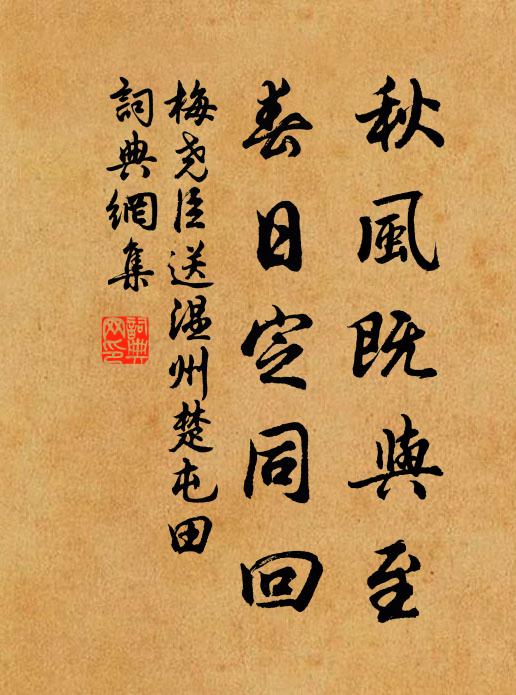 秋風既與至
春日定同回
梅尧臣送温州楚屯田
詞典網集
詞典網印